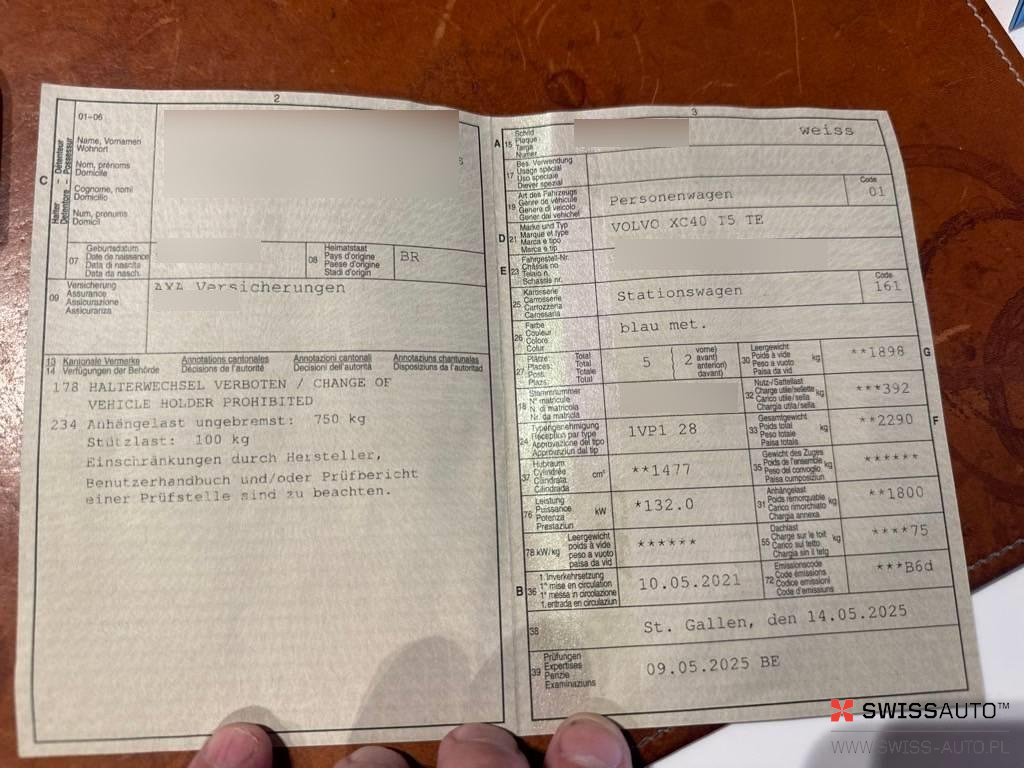 2
01-06
Name, Vornamen
Wohnort
Nom, prénoms
Domicile
Cognome, nomi
Domicilio
Num, prenums
Domicil
C
Halter - Détenteur
Detentore - Possessur
07 Geburtsdatum
Date de naissance
Data di nascita
Data da nasch.
08 Heimatstaat
Pays d'origine
Paese d'origine
Stadi d'origin
BR
09 Versicherung
Assurance
Assicurazione
Assicuranza
AXA Versicherungen
13 Kantonale Vermerke Annotations cantonales Annotazioni cantonali Annotaziuns chantunalas
14 Verfügungen der Behörde Décisions de l'autorité Decisioni dell'autorità Disposiziuns da l'autoritad
178 HALTERWECHSEL VERBOTEN / CHANGE OF
VEHICLE HOLDER PROHIBITED
234 Anhängelast ungebremst: 750 kg
Stützlast: 100 kg
Einschränkungen durch Hersteller,
Benutzerhandbuch und/oder Prüfbericht
einer Prüfstelle sind zu beachten.
3
A 15 Schild
Plaque
Targa
Numer
weiss
17 Bes. Verwendung
Usage spécial
Uso speciale
Diever spezial
19 Art des Fahrzeugs
Genre de véhicule
Genere di veicolo
Gener dal vehichel
Personenwagen
Code
01
D 21 Marke und Typ
Marque et type
Marca e tipo
Marca e tip
VOLVO XC40 T5 TE
E 23 Fahrgestell-Nr.
Châssis no
Telaio n.
Schassis nr.
25 Karosserie
Carrosserie
Carrozzeria
Carossaria
Stationswagen
Code
161
26 Farbe
Couleur
Colore
Colur
blau met.
27 Plätze: Total
Places: Total
Posti: Totale
Plazs: Total
5 2 vorne)
avant)
anteriori)
davant)
30 Leergewicht
Poids à vide
Peso a vuoto
Paisa da vid
kg
**1898
G
18 Stammnummer
N° matricule
N. di matricola
Nr. da matricla
32 Nutz-/Sattellast
Charge utile/sellette
Carico utile/sella
Chargia utila/sella
kg
***392
24 Typengenehmigung
Réception par type
Approvazione del tipo
Approvaziun dal tip
1VP1 28
33 Gesamtgewicht
Poids total
Peso totale
Paisa totala
kg
**2290
F
37 Hubraum
Cylindrée
Cilindrata
Cilindrada
cm³
**1477
35 Gewicht des Zuges
Poids de l'ensemble
Peso del convoglio
Paisa cumposiziun
kg
******
76 Leistung
Puissance
Potenza
Prestaziun
kW
*132.0
31 Anhängelast
Poids remorquable
Carico rimorchiato
Chargia annexa
kg
**1800
78 kW/kg Leergewicht
poids à vide
peso a vuoto
paisa da vid
******
55 Dachlast
Charge sur le toit
Carico sul tetto
Chargia sin il tetg
kg
****75
B 36 1. Inverkehrsetzung
1re mise en circulation
1a messa in circolazione
1. entrada en circulaziun
10.05.2021
72 Emissionscode
Code émissions
Codice emissioni
Code d'emissiuns
***B6d
38
St. Gallen, den 14.05.2025
39 Prüfungen
Expertises
Perizie
Examinaziuns
09.05.2025 BE
SWISSAUTO™
WWW.SWISS-AUTO.PL